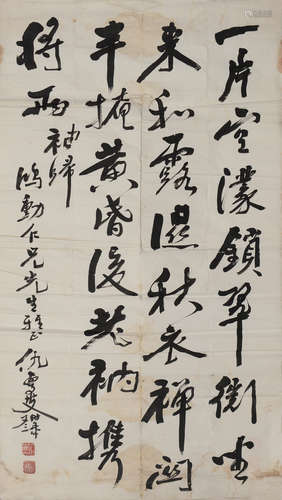 一片空濛鎖翠微坐
來和露濕秋衣禪關
半掩黃昏後老衲攜
將兩袖歸
鴻勳仁兄先生雅正